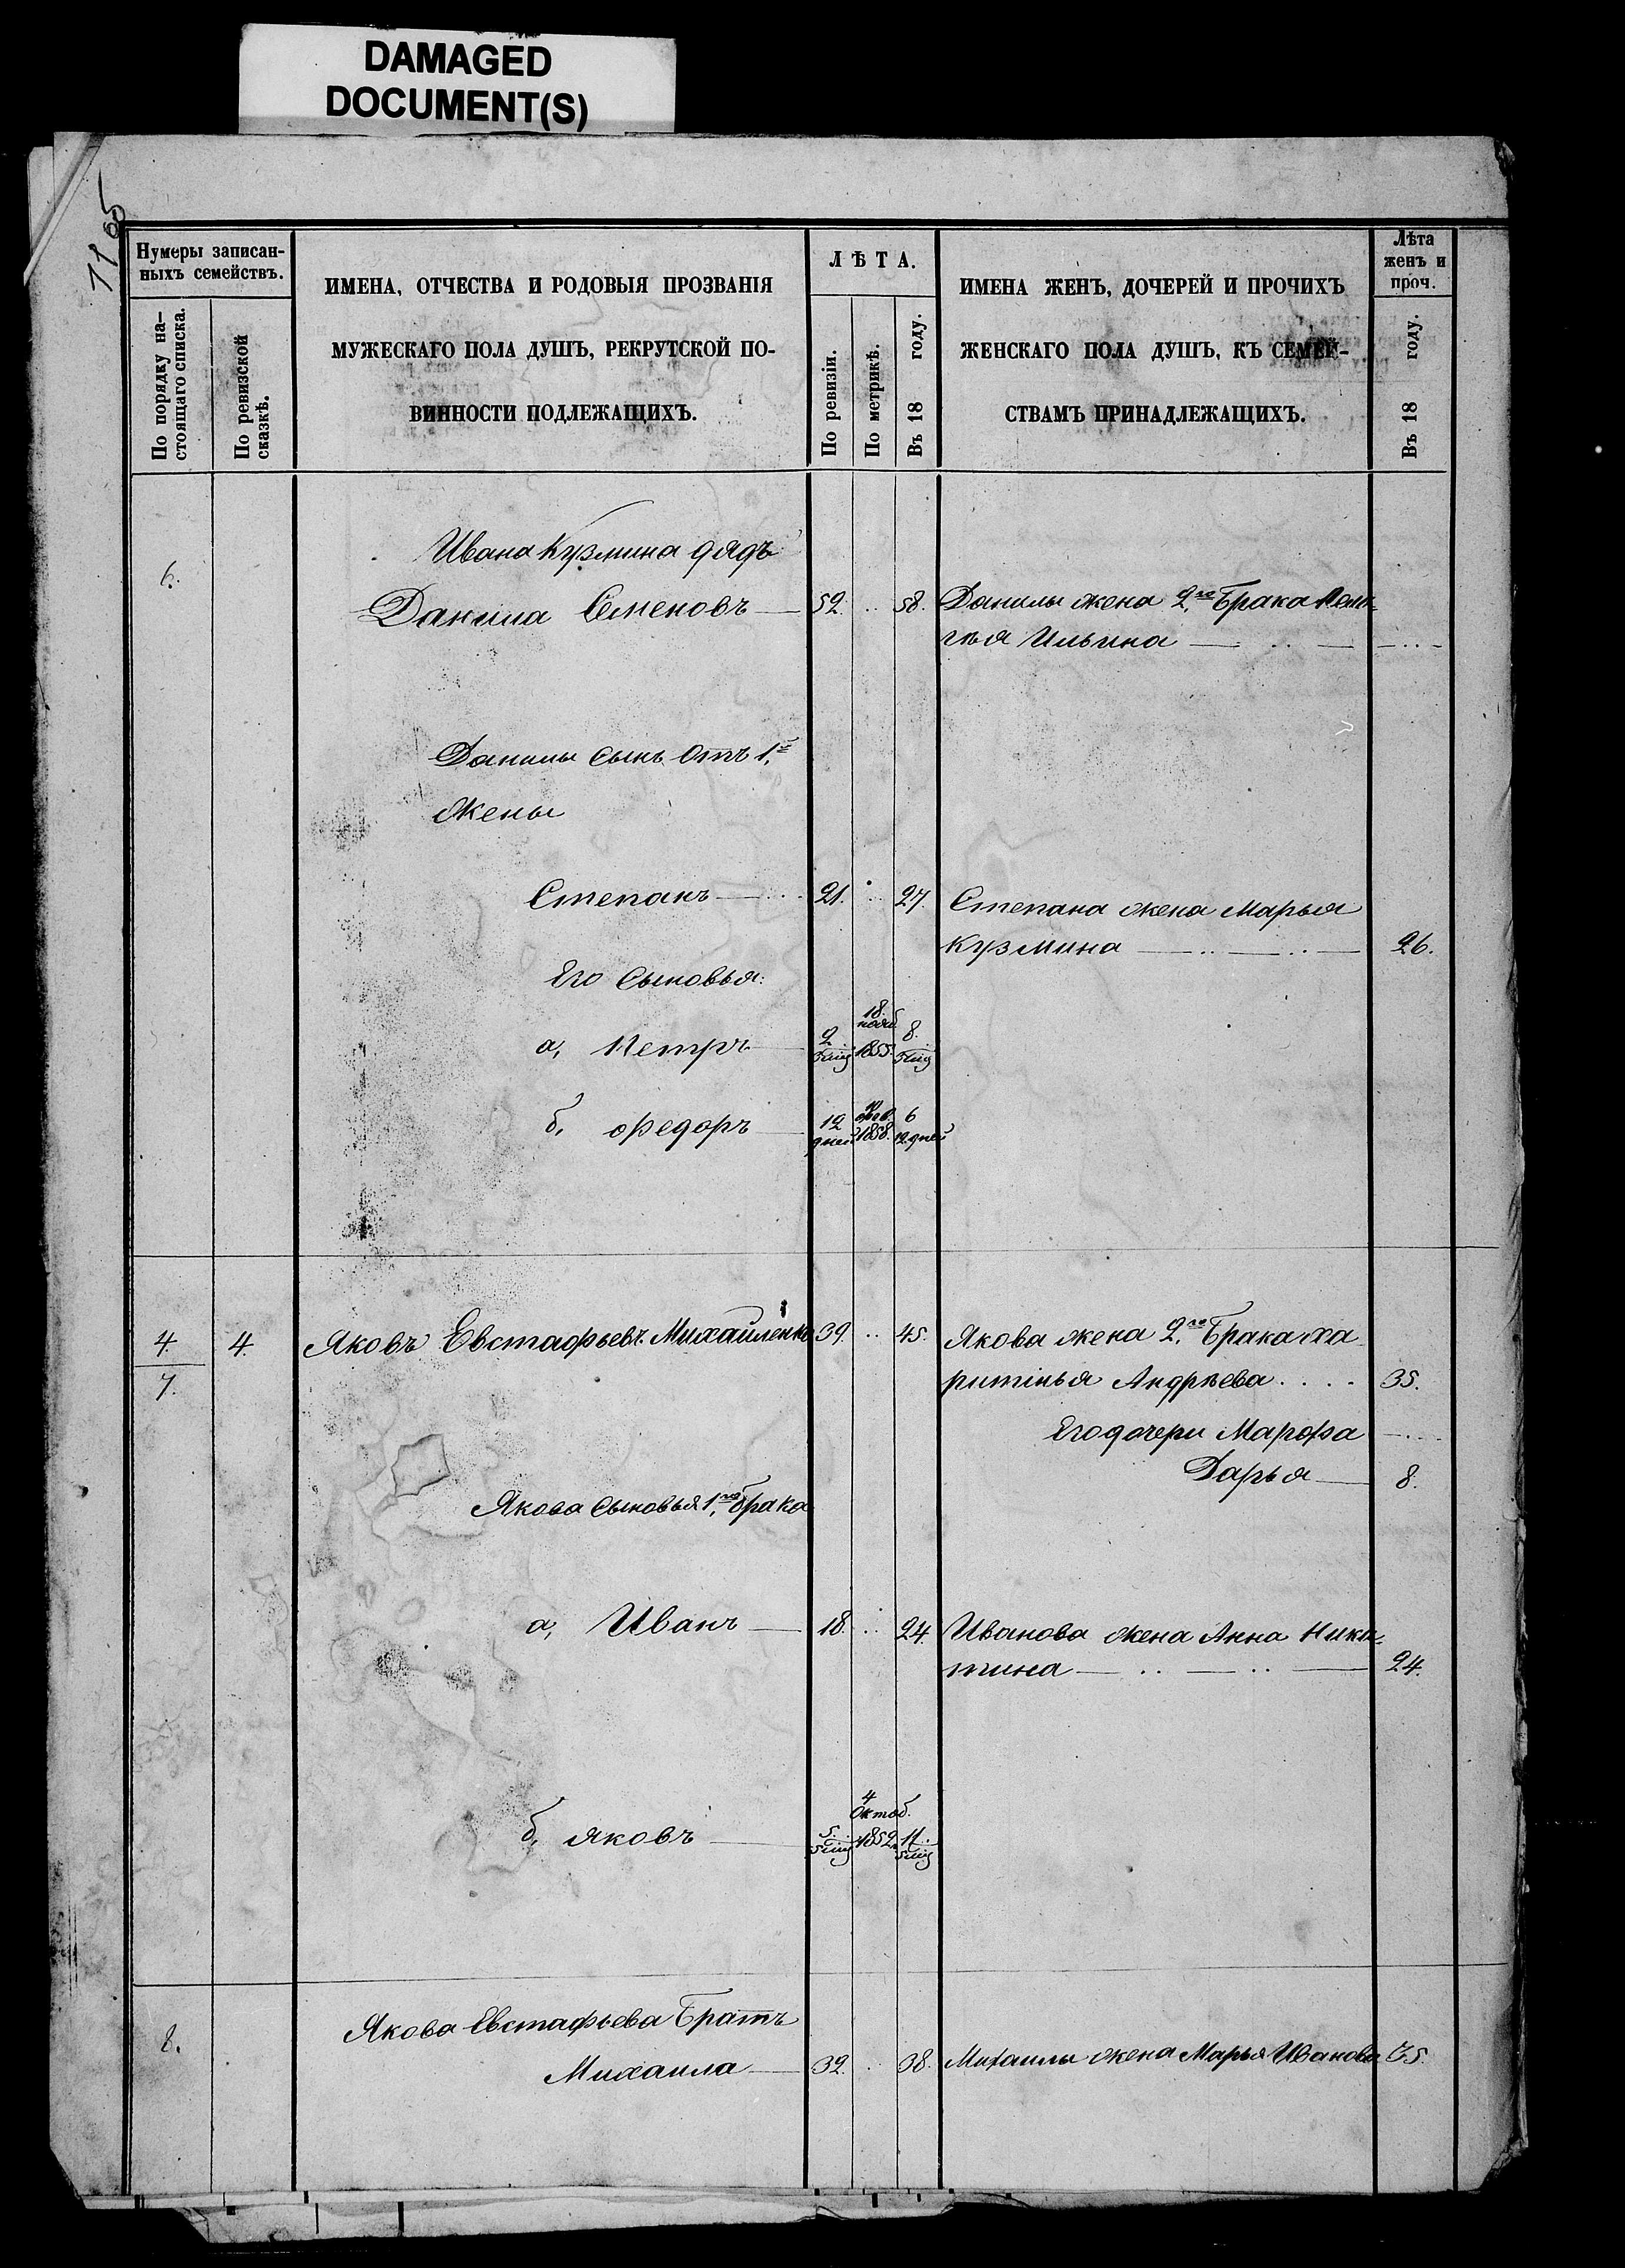 DAMAGED
DOCUMENT(S)
65
Нумеры записан-
ныхъ семействъ.
По порядку на-
стоящаго списка.
По ревизской
сказкѣ.
ИМЕНА, ОТЧЕСТВА И РОДОВЫЯ ПРОЗВАНІЯ
МУЖЕСКАГО ПОЛА ДУШЪ, РЕКРУТСКОЙ ПО-
ВИННОСТИ ПОДЛЕЖАЩИХЪ.
ЛѢТА.
По ревизіи.
По метрикѣ.
Въ 18 году.
ИМЕНА ЖЕНЪ, ДОЧЕРЕЙ И ПРОЧИХЪ
ЖЕНСКАГО ПОЛА ДУШЪ, КЪ СЕМЕЙ-
СТВАМЪ ПРИНАДЛЕЖАЩИХЪ.
Лѣта
женъ и
проч.
Въ 18 году.
Ивана Кузмина дядъ
6.
Данила Семеновъ 52. 58. Данилы жена 2го Брака
Ильина
Данилы сынъ отъ 1й
жены
Степанъ 21. 27. Степана жена Марья
Кузмина 26.
Его сыновья:
18.
нояб
а, Петръ 2. 5 мц 1855. 8. 5 мц
б, Федоръ 12 дней 1858. 6 12 дней
4. 4. Яковъ Евстафьевъ Михайленко 39. 45. Якова жена 2го Брака Ха
7. ритинья Андрѣева 35.
Его дочери Марфа
Дарья 8.
Якова сыновья 1го брака
а, Иванъ 18. 24. Иванова жена Анна Ники-
тина 24.
4
Октоб.
б, Яковъ 5. 5 мц 1852. 11. 5 мц
Якова Евстафьева Братъ
8.
Михаила 32. 38. Михаилы жена Марья Иванова 35.